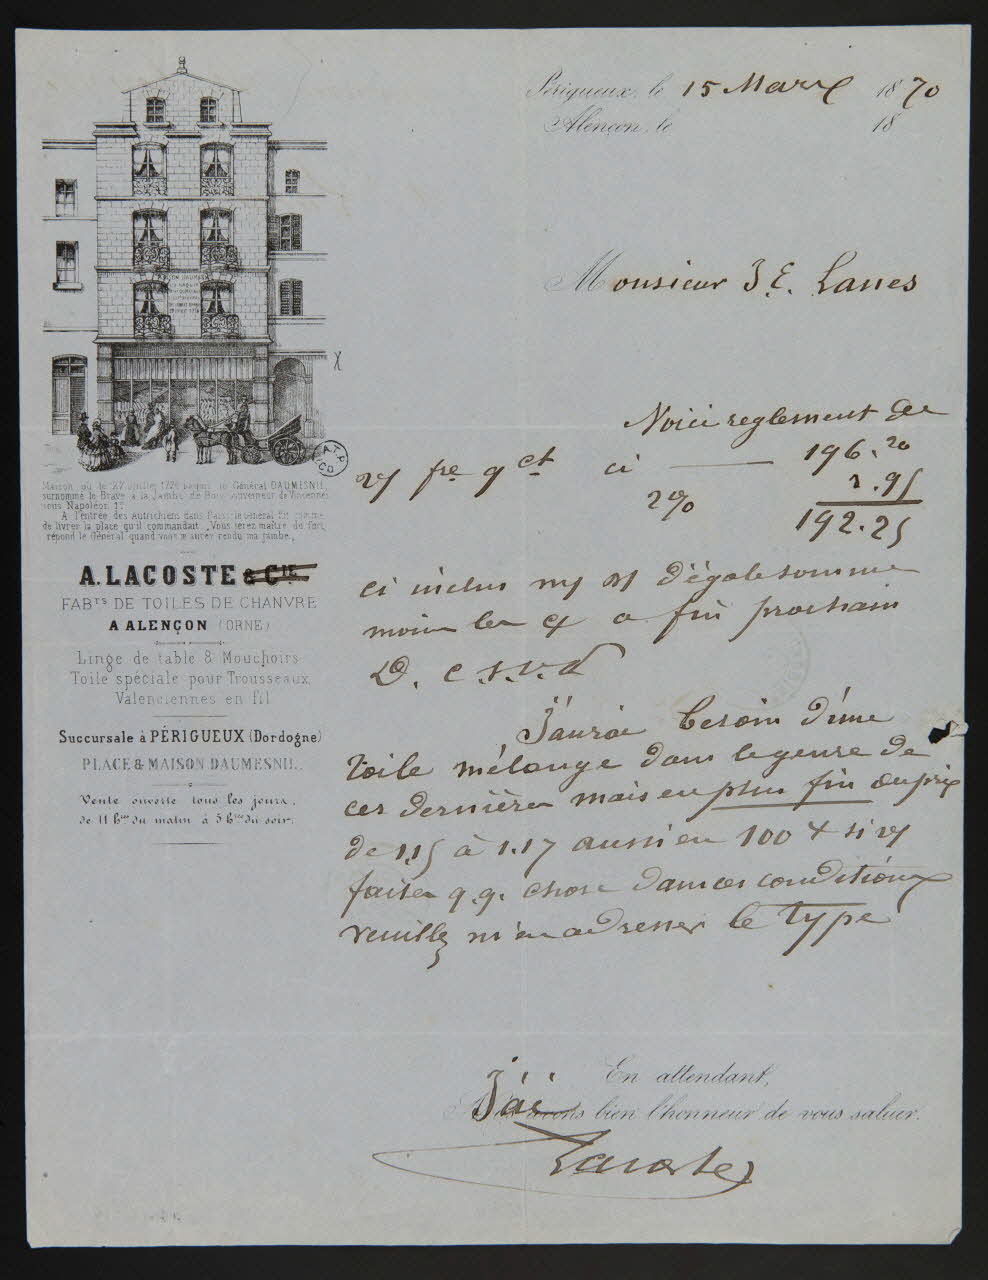 Périgueux, le 15 Mars 1870
Alençon, le 18
Monsieur J. E. Lanes
MAISON DAUMESNIL
A.T.P.
CO
Maison où le 27 Juillet 1776 naquit le Général DAUMESNIL
surnommé le Brave à la Jambe de Bois Gouverneur de Vincennes
sous Napoléon 1er
A l'entrée des Autrichiens dans Paris le Général fut sommé
de livrer la place qu'il commandait. „Vous serez maître du fort,
répond le Général quand vous m'aurez rendu ma jambe„
A. LACOSTE & Cie
FABts DE TOILES DE CHANVRE
A ALENÇON (ORNE)
Linge de table & Mouchoirs
Toile spéciale pour Trousseaux,
Valenciennes en fil
Succursale à PÉRIGUEUX (Dordogne)
PLACE & MAISON DAUMESNIL
Vente ouverte tous les jours,
de 11 hres du matin à 5 hres du soir.
Voici reglement de
vs fre ct ci 196.20
2% 3.95
192.25
ci inclus d'égale somme
a fin prochain
D. c. s. v. d
J'aurai besoin d'une
toile mélange dans le genre de
ces dernières mais en plus fin au prix
de 1.15 à 1.17 aussi en 100 si vs
faites q.q. chose dans ces conditions
veuillez m'en adresser le type
En attendant,
J'ai bien l'honneur de vous saluer.
Lacoste